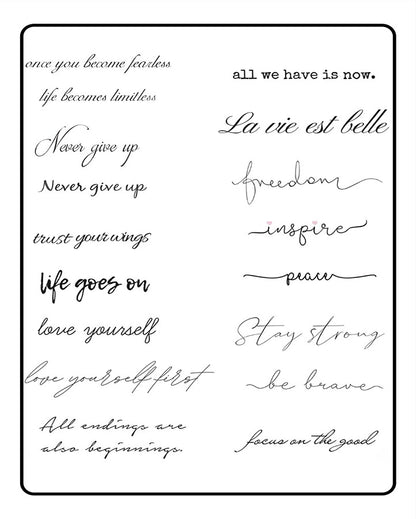 once you become fearless
life becomes limitless
Never give up
Never give up
trust your wings
life goes on
love yourself
love yourself first
All endings are
also beginnings.
all we have is now.
La vie est belle
freedom
inspire
peace
Stay strong
be brave
focus on the good